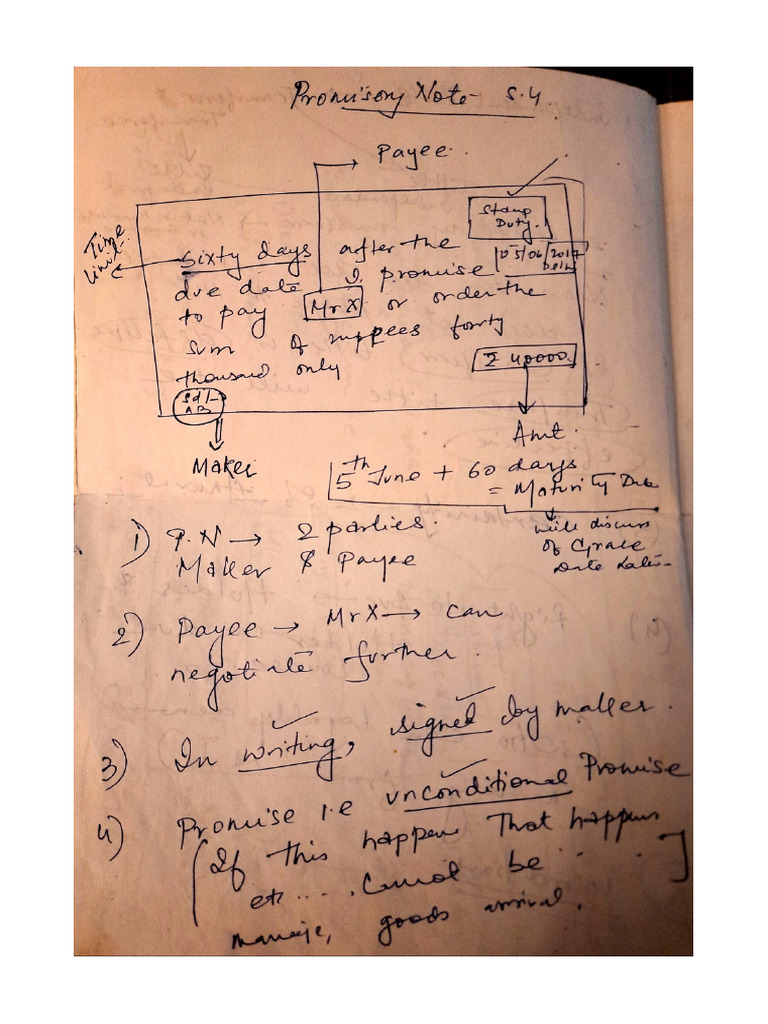 Promisory Note S.4
Payee.
Stamp
Duty.
Time
limit
Sixty days after the
05/06/2017
Delhi
due date I promise
to pay Mr X or order the
sum of ruppees forty
thousand only
₹ 40000
Sd/-
AB
Maker
Amt.
5th June + 60 days
= Maturity Due
will discuss
of Grace
Date Later
1) P.N → 2 parties.
Maker & Payee
2) Payee → Mr X → can
negotiate further.
3) In writing, signed by maker.
4) Promise i.e unconditional Promise
[If this happen That happens
etc..... Cannot be .....]
goods arrival.